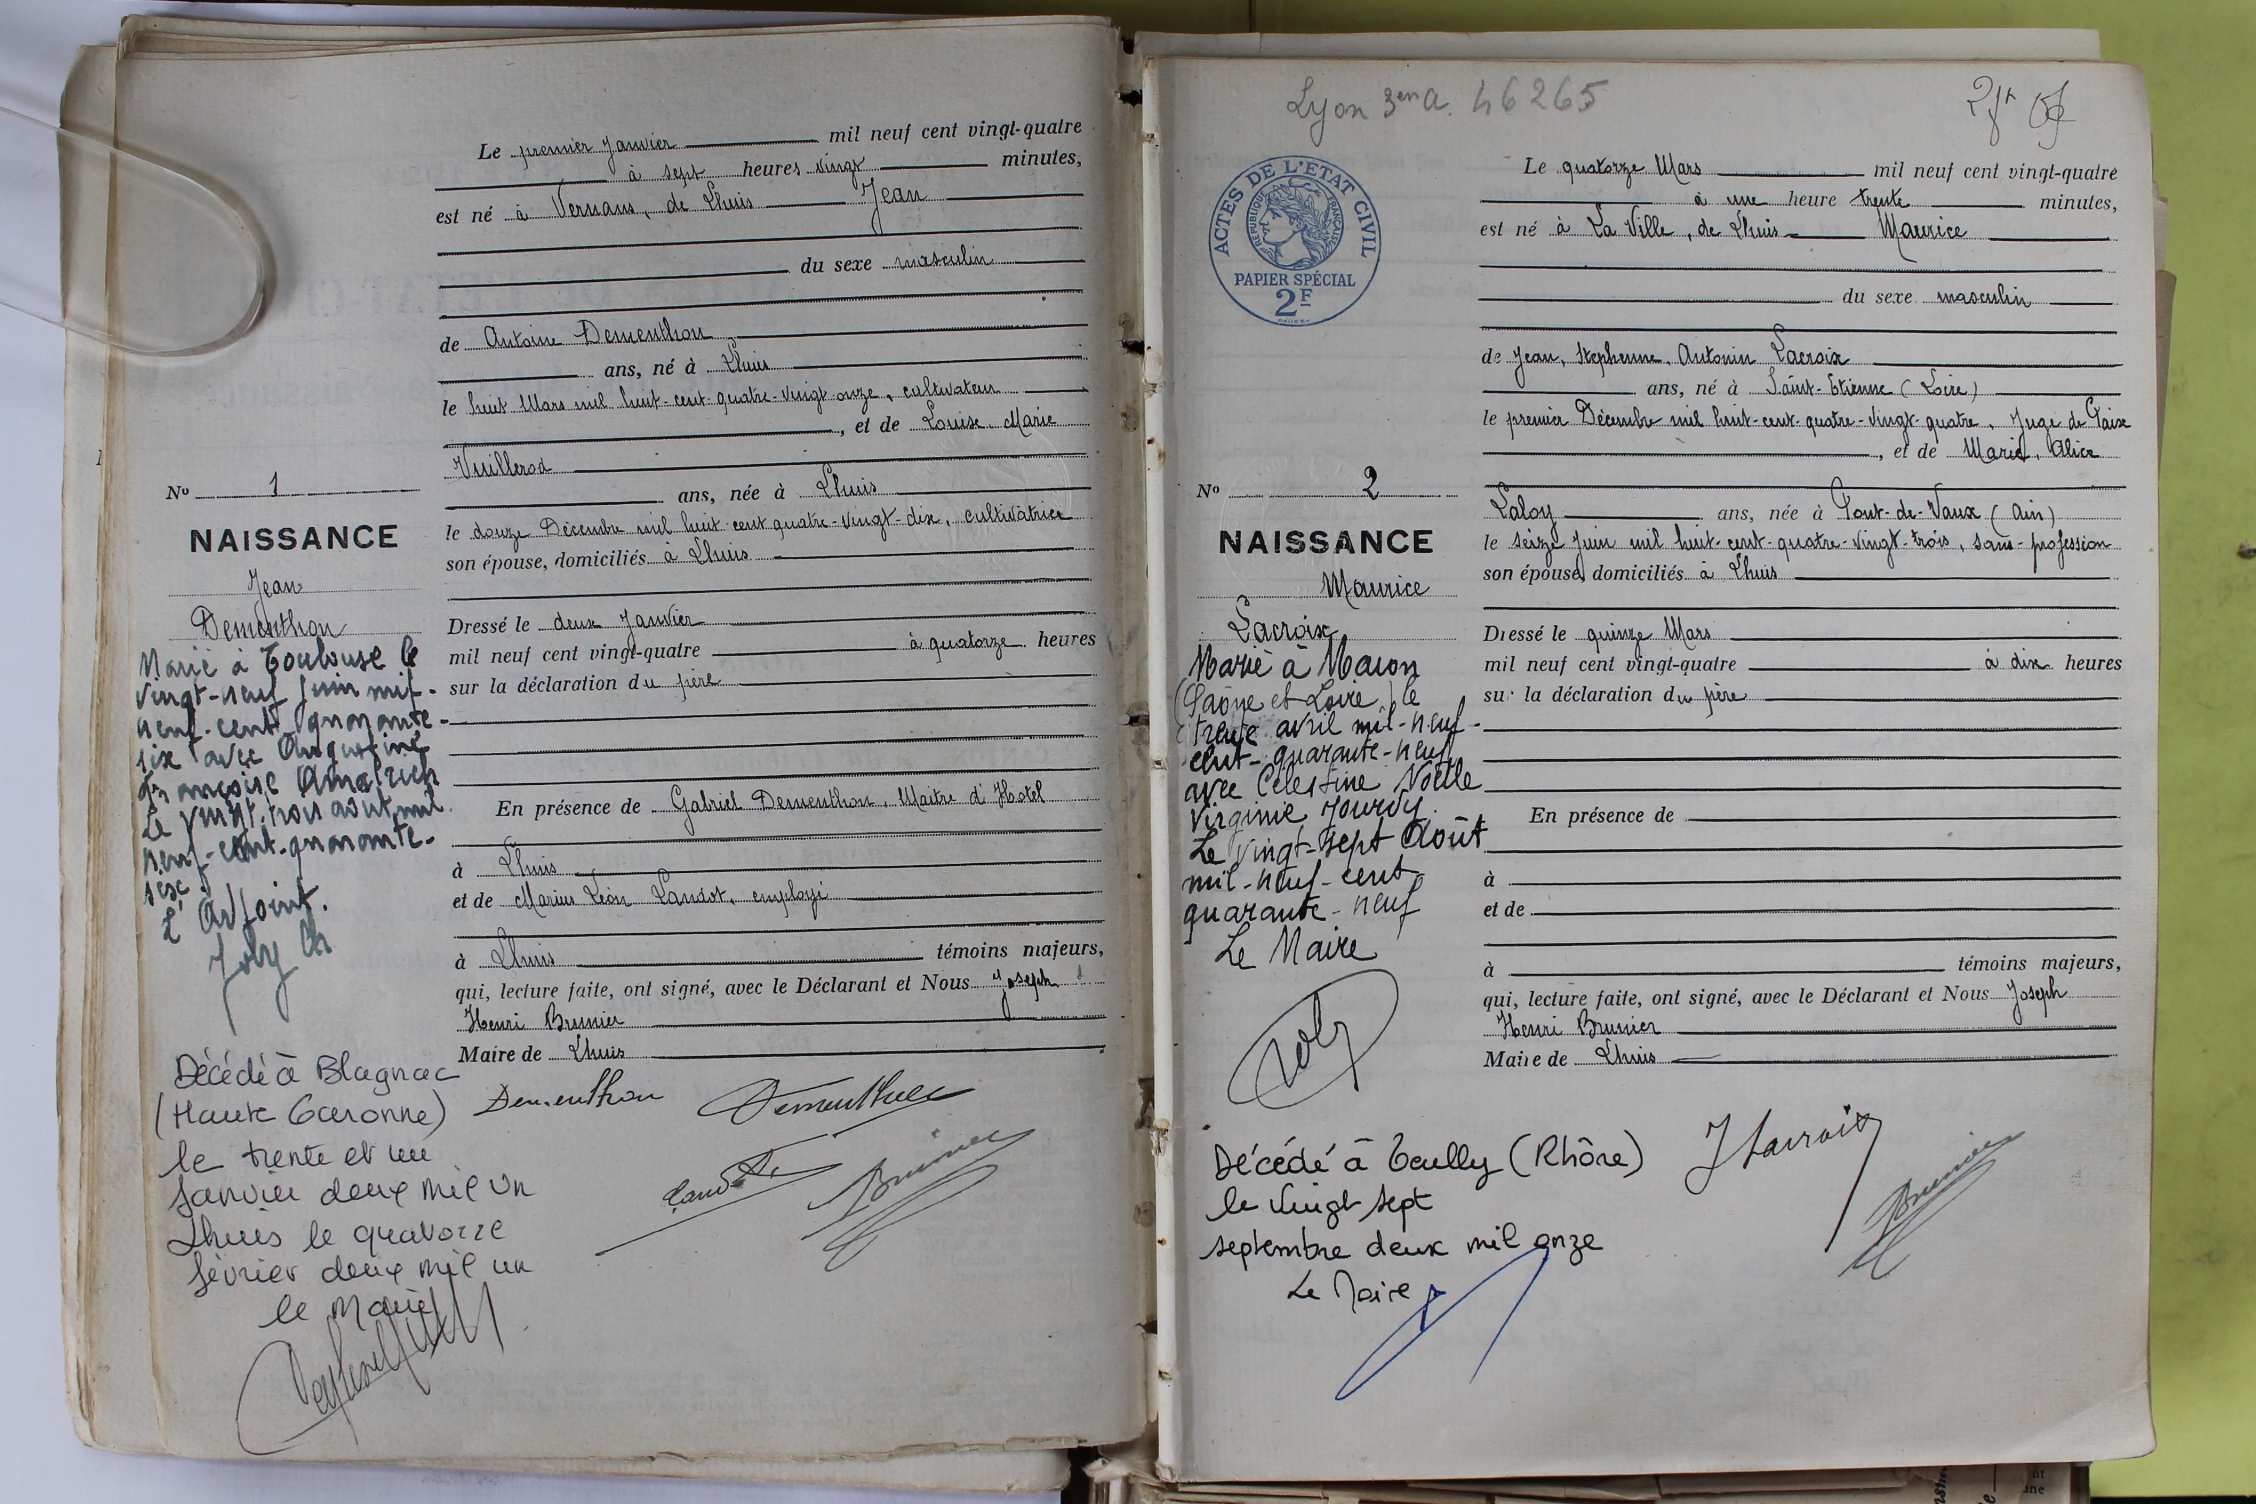 Le premier Janvier mil neuf cent vingt-quatre
à sept heures vingt minutes,
est né à Vernans, de Lhuis Jean
du sexe masculin
de Antoine Dementhon
ans, né à Lhuis
le huit Mars mil huit-cent-quatre-vingt onze, cultivateur
, et de Louise Marie
Vuillerod
ans, née à Lhuis
le douze Décembre mil huit cent quatre-vingt-dix, cultivatrice
son épouse, domiciliés à Lhuis
Dressé le deux Janvier
mil neuf cent vingt-quatre à quatorze heures
sur la déclaration du père
En présence de Gabriel Dementhon, Maitre d'Hotel
à Lhuis
et de Marius Léon Landot, employé
à Lhuis témoins majeurs,
qui, lecture faite, ont signé, avec le Déclarant et Nous Joseph
Henri Brunier
Maire de Lhuis
Nº 1
NAISSANCE
Jean
Dementhon
Marié à Toulouse le
vingt-neuf juin mil-
neuf-cent quarante-
six avec Augustine
Françoise Amalrich
Le vingt-trois août mil
neuf-cent-quarante-
six
L'Adjoint.
Joly Ch
Décédé à Blagnac
(Haute Garonne)
le trente et un
Janvier deux mil un
Lhuis le quatorze
février deux mil un
le Maire
Dementhon Dementhon
Landot Brunier
Lyon 3en a. 46265
ACTES DE L'ETAT CIVIL
REPUBLIQUE FRANÇAISE
PAPIER SPÉCIAL
2F
Le quatorze Mars mil neuf cent vingt-quatre
à une heure trente minutes,
est né à La Ville, de Lhuis Maurice
du sexe masculin
de Jean, Stephenne, Antonin Lacroix
ans, né à Saint-Etienne (Loire)
le premier Décembre mil huit-cent-quatre-vingt-quatre, Juge de Paix
, et de Marie, Alice
Laloy ans, née à Pont-de-Vaux (Ain)
le seize Juin mil huit-cent-quatre-vingt-trois, sans-profession
son épouse, domiciliés à Lhuis
Dressé le quinze Mars
mil neuf cent vingt-quatre à dix heures
sur la déclaration du père
En présence de
à
et de
à témoins majeurs,
qui, lecture faite, ont signé, avec le Déclarant et Nous Joseph
Henri Brunier
Maire de Lhuis
Nº 2
NAISSANCE
Maurice
Lacroix
Marié à Macon
(Saône et Loire) le
trente avril mil-neuf-
cent-quarante-neuf
avec Célestine Noëlle
Virginie Jourdy
Le vingt-sept Août
mil-neuf-cent
quarante-neuf
Le Maire
Joly
Décédé à Ecully (Rhône)
le vingt sept
septembre deux mil onze
Le Maire
J Lacroix
Brunier